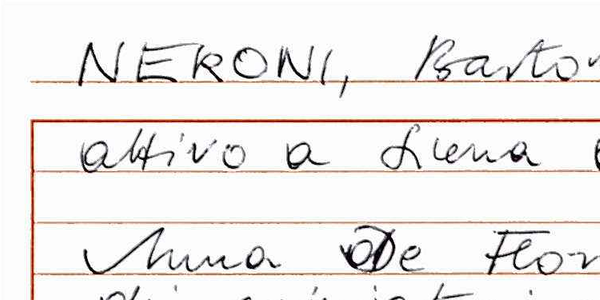 NERONI, Barto
attivo a Siena
Anna De Flor